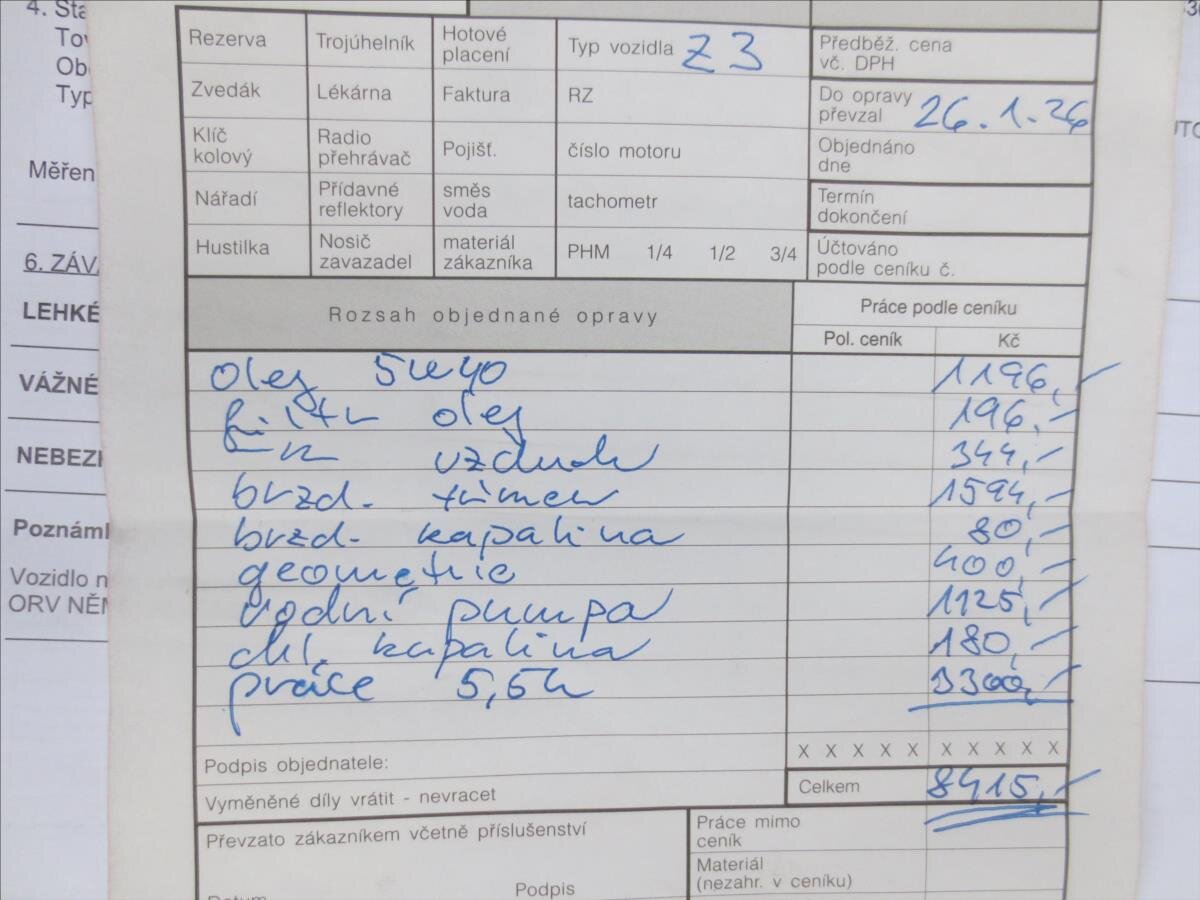 4. Sta
Tov
Obe
Typ
Měřen
6. ZÁVA
LEHKÉ
VÁŽNÉ
NEBEZE
Poznámk
Vozidlo n
ORV NĚM
Rezerva Trojúhelník Hotové placení Typ vozidla Z3 Předběž. cena vč. DPH
Zvedák Lékárna Faktura RZ Do opravy převzal 26.1.26
Klíč kolový Radio přehrávač Pojišť. číslo motoru Objednáno dne
Nářadí Přídavné reflektory směs voda tachometr Termín dokončení
Hustilka Nosič zavazadel materiál zákazníka PHM 1/4 1/2 3/4 Účtováno podle ceníku č.
Rozsah objednané opravy Práce podle ceníku
Pol. ceník Kč
olej 5w40 1196,-
filtr olej 196,-
-"- vzduch 344,-
brzd. třmen 1594,-
brzd. kapalina 80,-
geometrie 400,-
vodní pumpa 1125,-
chl. kapalina 180,-
práce 5,5h 3300,-
X X X X X X X X X X
Podpis objednatele:
Vyměněné díly vrátit - nevracet Celkem 8415,-
Převzato zákazníkem včetně příslušenství Práce mimo ceník
Materiál (nezahr. v ceníku)
Datum Podpis